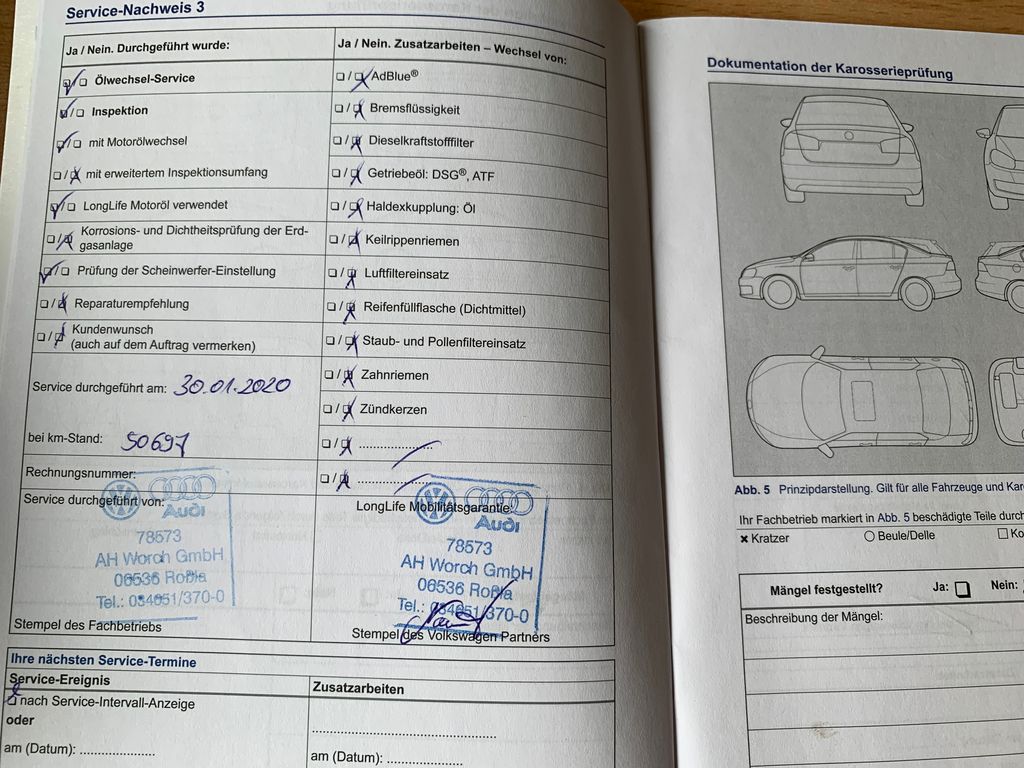 Service-Nachweis 3
Ja / Nein. Durchgeführt wurde:
Ölwechsel-Service
Inspektion
mit Motorölwechsel
mit erweitertem Inspektionsumfang
LongLife Motoröl verwendet
Korrosions- und Dichtheitsprüfung der Erd-
gasanlage
Prüfung der Scheinwerfer-Einstellung
Reparaturempfehlung
Kundenwunsch
(auch auf dem Auftrag vermerken)
Service durchgeführt am: 30.01.2020
bei km-Stand: 50697
Rechnungsnummer:
Service durchgeführt von:
Audi
78573
AH Worch GmbH
06536 Roßla
Tel.: 034651/370-0
Stempel des Fachbetriebs
Ja / Nein. Zusatzarbeiten – Wechsel von:
AdBlue®
Bremsflüssigkeit
Dieselkraftstofffilter
Getriebeöl: DSG®, ATF
Haldexkupplung: Öl
Keilrippenriemen
Luftfiltereinsatz
Reifenfüllflasche (Dichtmittel)
Staub- und Pollenfiltereinsatz
Zahnriemen
Zündkerzen
LongLife Mobilitätsgarantie:
Audi
78573
AH Worch GmbH
06536 Roßla
Tel.: 034651/370-0
Stempel des Volkswagen Partners
Ihre nächsten Service-Termine
Service-Ereignis
nach Service-Intervall-Anzeige
oder
am (Datum): ....................
Zusatzarbeiten
am (Datum): ....................
Dokumentation der Karosserieprüfung
Abb. 5 Prinzipdarstellung. Gilt für alle Fahrzeuge und
Ihr Fachbetrieb markiert in Abb. 5 beschädigte Teile
Kratzer
Beule/Delle
Mängel festgestellt? Ja: Nein:
Beschreibung der Mängel: